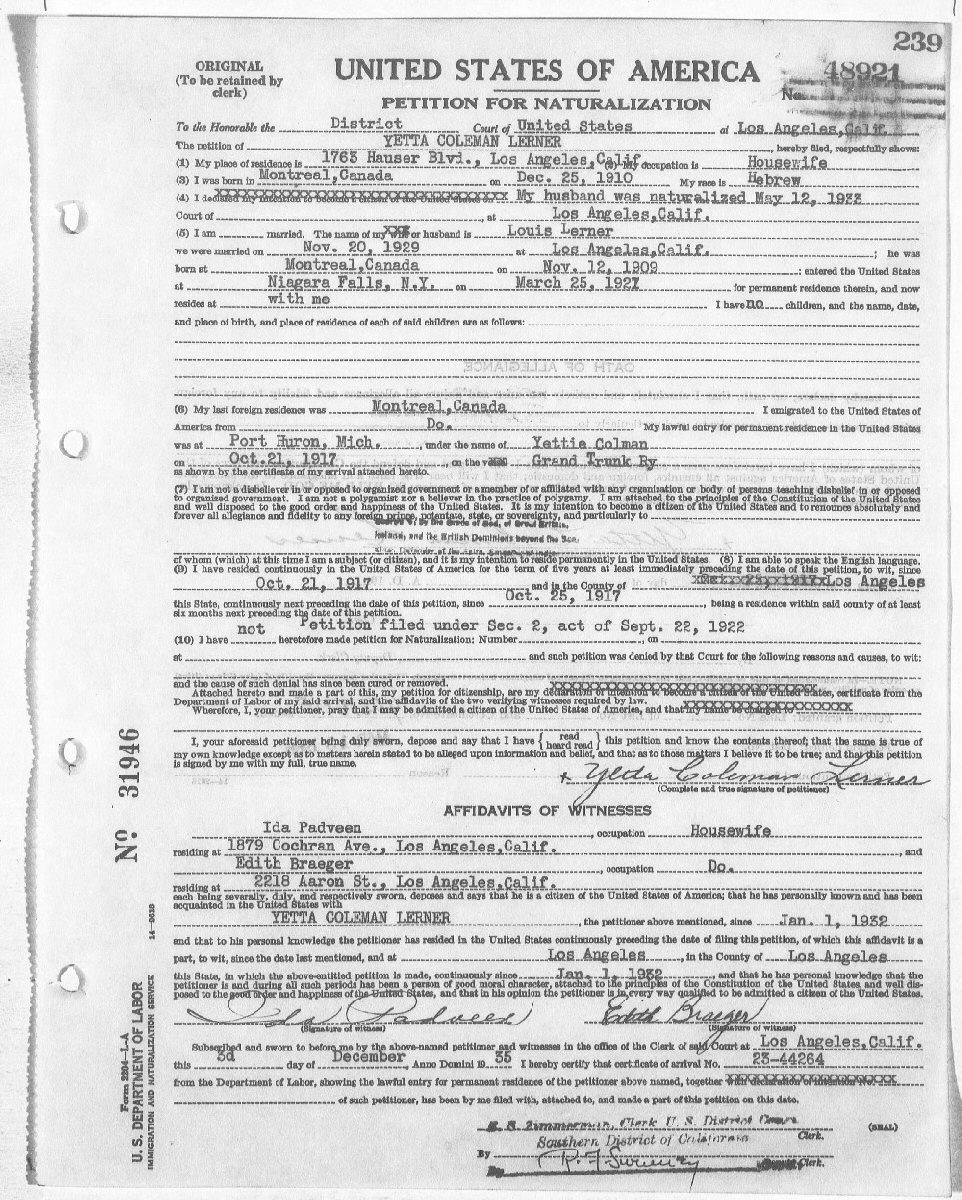 239
ORIGINAL
(To be retained by
clerk)
UNITED STATES OF AMERICA
48921
No.
PETITION FOR NATURALIZATION
To the Honorable the District Court of United States at Los Angeles, Calif.
The petition of YETTA COLEMAN LERNER, hereby filed, respectfully shows:
(1) My place of residence is 1763 Hauser Blvd., Los Angeles, Calif. (2) My occupation is Housewife
(3) I was born in Montreal, Canada on Dec. 25, 1910 My race is Hebrew
(4) I declared my intention to become a citizen of the United States My husband was naturalized May 12, 1933
Court of , at Los Angeles, Calif.
(5) I am married. The name of my wife or husband is Louis Lerner
we were married on Nov. 20, 1929 at Los Angeles, Calif. ; he was
born at Montreal, Canada on Nov. 12, 1909 ; entered the United States
at Niagara Falls, N.Y. on March 25, 1921 for permanent residence therein, and now
resides at with me I have no children, and the name, date,
and place of birth, and place of residence of each of said children are as follows:
OATH OF ALLEGIANCE
(6) My last foreign residence was Montreal, Canada I emigrated to the United States of
America from Do. My lawful entry for permanent residence in the United States
was at Port Huron, Mich. , under the name of Yettie Colman
on Oct. 21, 1917 , on the Grand Trunk Ry
as shown by the certificate of my arrival attached hereto.
(7) I am not a disbeliever in or opposed to organized government or a member of or affiliated with any organization or body of persons teaching disbelief in or opposed
to organized government. I am not a polygamist nor a believer in the practice of polygamy. I am attached to the principles of the Constitution of the United States
and well disposed to the good order and happiness of the United States. It is my intention to become a citizen of the United States and to renounce absolutely and
forever all allegiance and fidelity to any foreign prince, potentate, state, or sovereignty, and particularly to
George V, by the Grace of God, of Great Britain,
Ireland, and the British Dominions beyond the Sea,
of whom (which) at this time I am a subject (or citizen), and it is my intention to reside permanently in the United States. (8) I am able to speak the English language.
(9) I have resided continuously in the United States of America for the term of five years at least immediately preceding the date of this petition, to wit, since
Oct. 21, 1917 and in the County of Los Angeles
this State, continuously next preceding the date of this petition, since Oct. 25, 1917 , being a residence within said county of at least
six months next preceding the date of this petition.
Petition filed under Sec. 2, act of Sept. 22, 1922
(10) I have not heretofore made petition for Naturalization: Number , on
at and such petition was denied by that Court for the following reasons and causes, to wit:
and the cause of such denial has since been cured or removed.
Attached hereto and made a part of this, my petition for citizenship, are my declaration of intention to become a citizen of the United States, certificate from the
Department of Labor of my said arrival, and the affidavits of the two verifying witnesses required by law.
Wherefore, I, your petitioner, pray that I may be admitted a citizen of the United States of America, and that my name be changed
I, your aforesaid petitioner being duly sworn, depose and say that I have { read heard read } this petition and know the contents thereof; that the same is true of
my own knowledge except as to matters herein stated to be alleged upon information and belief, and that as to those matters I believe it to be true; and that this petition
is signed by me with my full, true name.
x Yetta Coleman Lerner
(Complete and true signature of petitioner)
AFFIDAVITS OF WITNESSES
Ida Padveen , occupation Housewife
residing at 1879 Cochran Ave., Los Angeles, Calif. , and
Edith Braeger , occupation Do.
residing at 2218 Aaron St., Los Angeles, Calif.
each being severally, duly, and respectively sworn, deposes and says that he is a citizen of the United States of America; that he has personally known and has been
acquainted in the United States with
YETTA COLEMAN LERNER , the petitioner above mentioned, since Jan. 1, 1932
and that to his personal knowledge the petitioner has resided in the United States continuously preceding the date of filing this petition, of which this affidavit is a
part, to wit, since the date last mentioned, and at Los Angeles , in the County of Los Angeles
this State, in which the above-entitled petition is made, continuously since Jan. 1, 1932 , and that he has personal knowledge that the
petitioner is and during all such periods has been a person of good moral character, attached to the principles of the Constitution of the United States, and well dis-
posed to the good order and happiness of the United States, and that in his opinion the petitioner is in every way qualified to be admitted a citizen of the United States.
Ida Padveen Edith Braeger
(Signature of witness) (Signature of witness)
Subscribed and sworn to before me by the above-named petitioner and witnesses in the office of the Clerk of said Court at Los Angeles, Calif.
this 3d day of December , Anno Domini 19 35 I hereby certify that certificate of arrival No. 23-44264
from the Department of Labor, showing the lawful entry for permanent residence of the petitioner above named, together with declaration of intention No.
of such petitioner, has been by me filed with, attached to, and made a part of this petition on this date.
R. S. Zimmerman, Clerk U. S. District Court
Clerk. (SEAL)
Southern District of California
By R. F. Sweeney
By Deputy Clerk.
No 31946
14—2623
Form 2204—L-A
U. S. DEPARTMENT OF LABOR
IMMIGRATION AND NATURALIZATION SERVICE